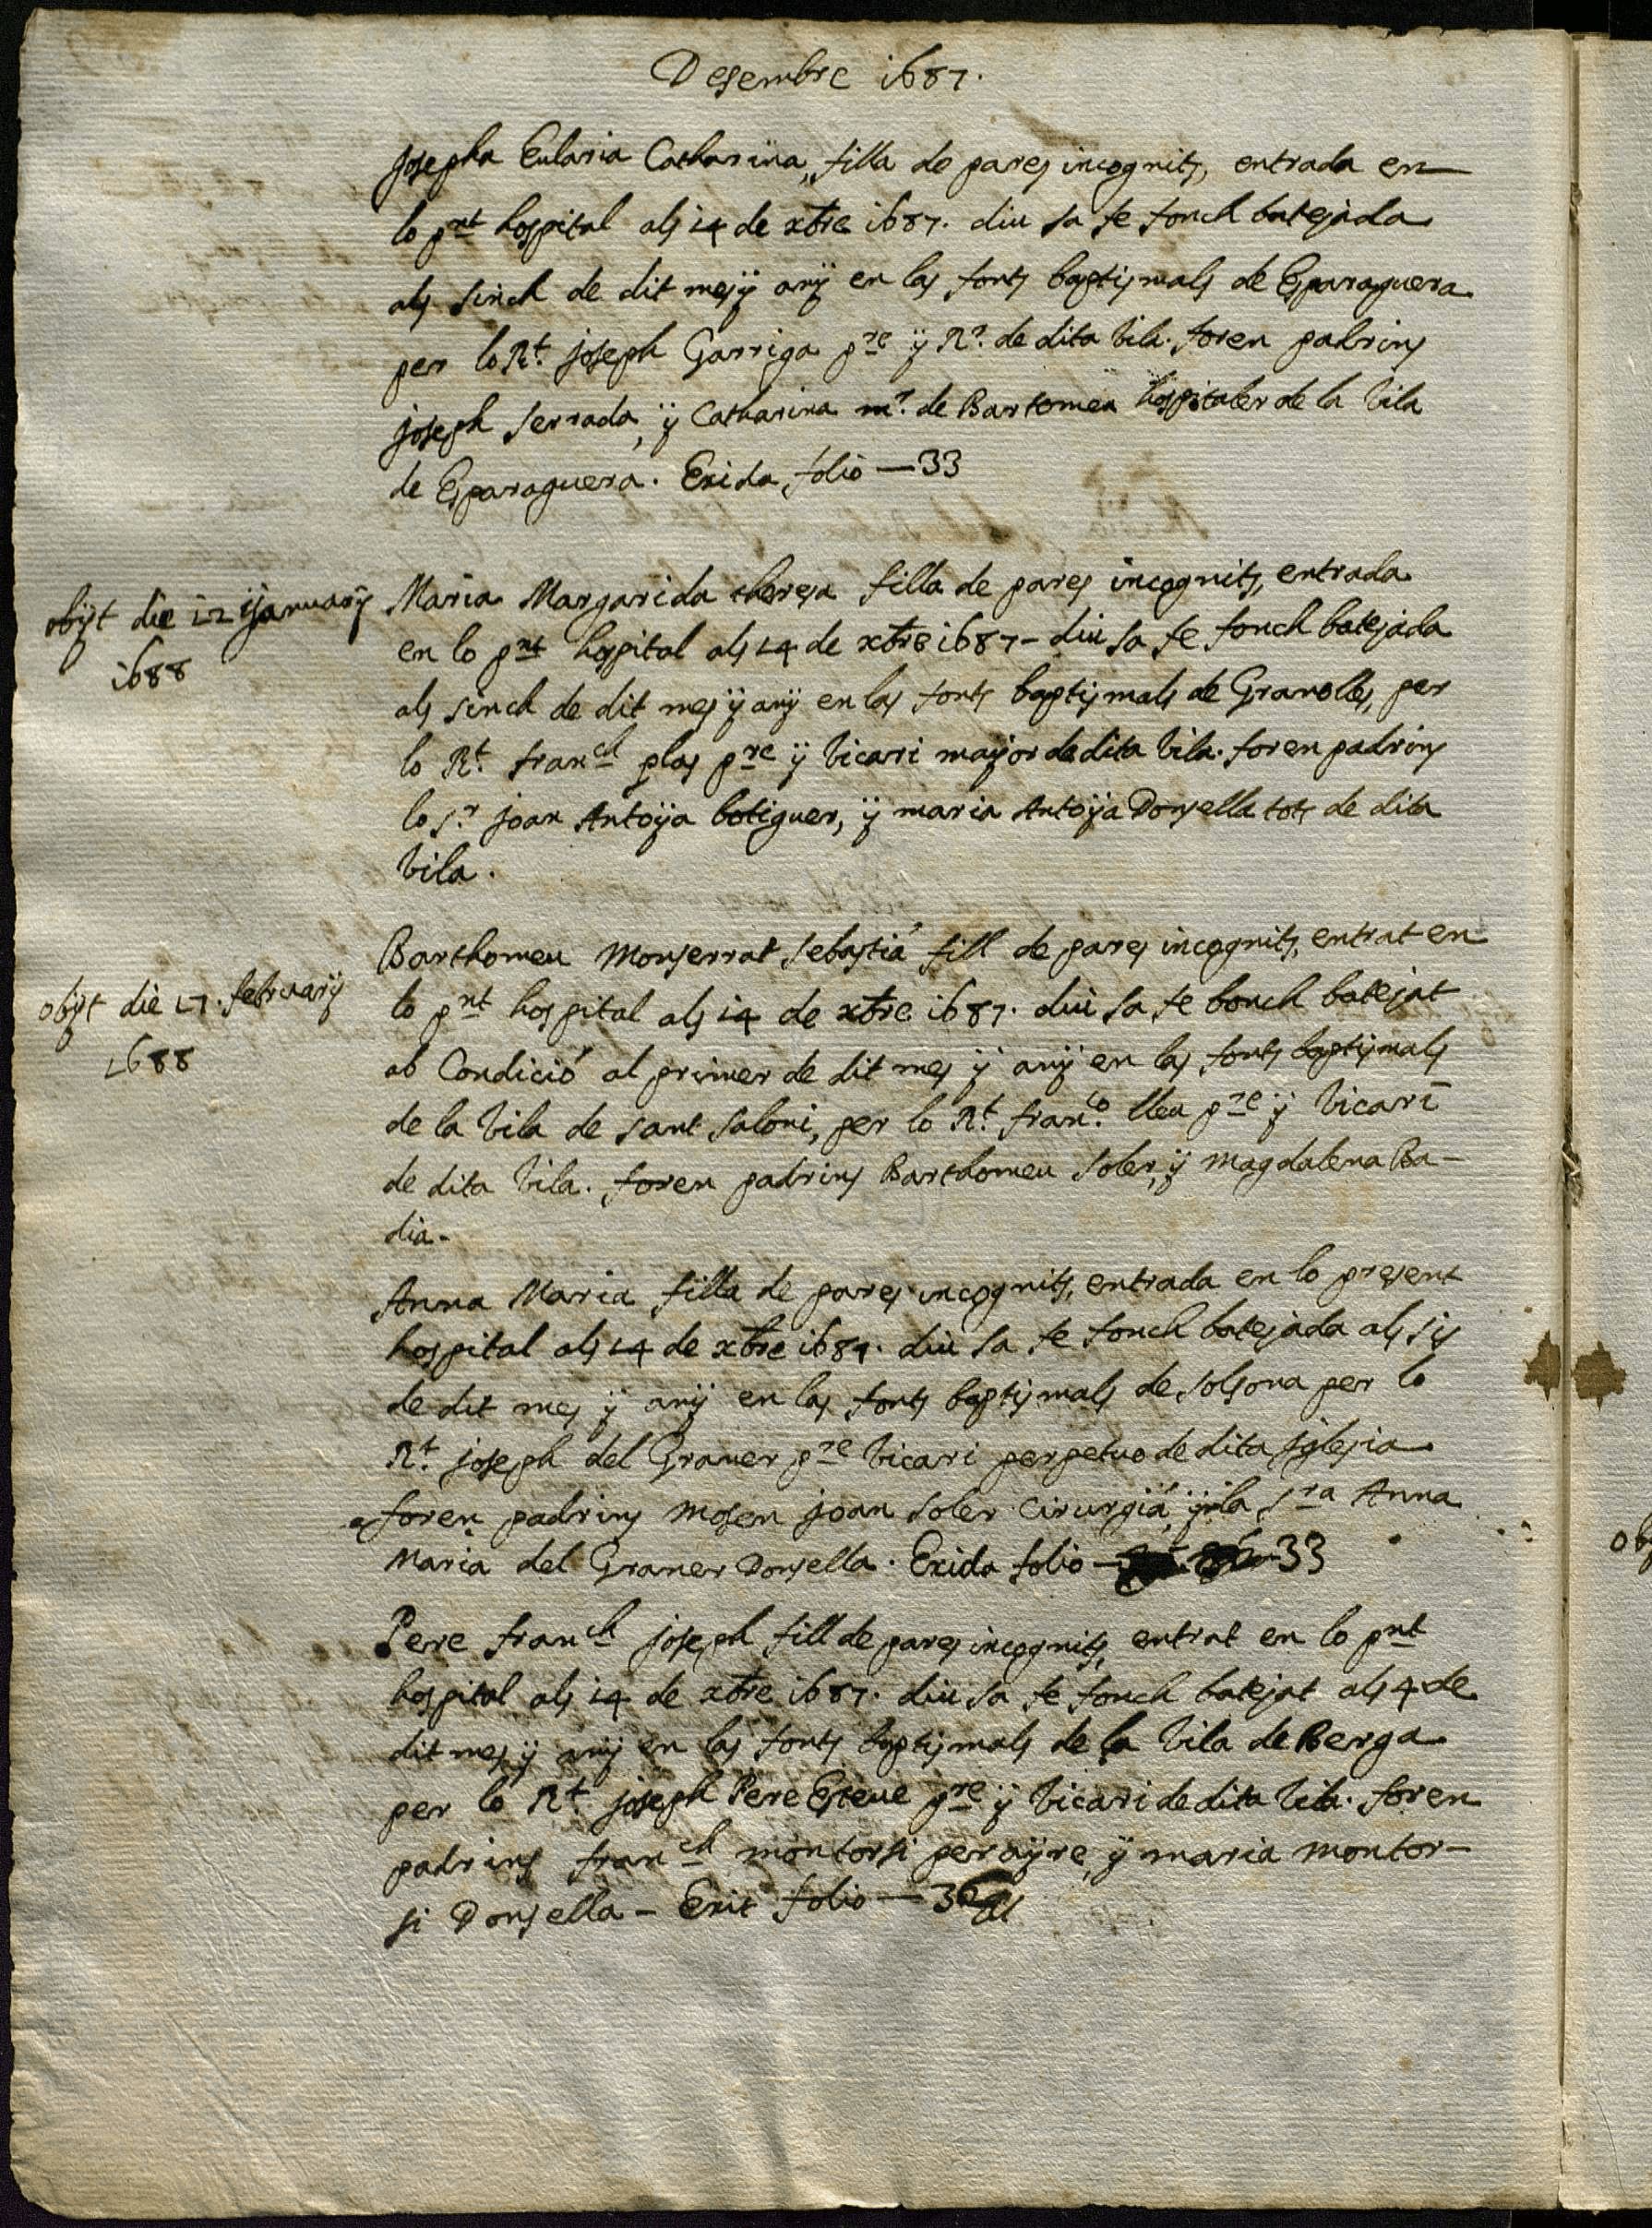 Desembre 1687.
Josepha Eularia Catharina, filla de pares incognits, entrada en
lo pnt hospital als 14 de xbre 1687. diu sa fe fonch batejada
als sinch de dit mes ÿ anÿ en las fonts baptismals de Esparaguera
per lo Rt. joseph Garriga pre ÿ Rr. de dita vila. foren padrins
joseph Serrada, ÿ Catharina mr. de Bartomeu hospitaler de la vila
de Esparaguera. Exida folio — 33
obijt die 12 januarij
1688
Maria Margarida theresa filla de pares incognits, entrada
en lo pnt hospital als 14 de xbre 1687 - diu sa fe fonch batejada
als sinch de dit mes ÿ anÿ en las fonts baptismals de Granolles, per
lo Rt. franch plas pre ÿ vicari major de dita vila. foren padrins
lo sr. joan Antoÿa botiguer, ÿ maria Antoÿa Donsella tots de dita
vila.
obijt die 17. februarij
1688
Barthomeu Monserrat Sebastiá fill de pares incognits, entrat en
lo pnt hospital als 14 de xbre 1687. diu sa fe bonch batejat
ab Condició al primer de dit mes ÿ anÿ en las fonts baptismals
de la vila de sant saloni, per lo Rt. franco. lleu pre ÿ vicari
de dita vila. foren padrins Barthomeu Soler, ÿ Magdalena Ba-
dia.
Anna Maria filla de pares incognits, entrada en lo present
hospital als 14 de xbre 1687. diu sa fe fonch batejada als sis
de dit mes ÿ anÿ en las fonts baptismals de solsona per lo
Rt. joseph del Graner pre vicari perpetuo de dita iglesia
foren padrins Mosen joan Soler Cirurgiá, ÿ la sra Anna
Maria del Graner Donsella. Exida folio — 33
Pere franch joseph fill de pares incognits, entrat en lo pnt
hospital als 14 de xbre 1687. diu sa fe fonch batejat als 4 de
dit mes ÿ anÿ en las fonts baptismals de la vila de Berga
per lo Rt. joseph Pere Esteue pre ÿ vicari de dita vila. foren
padrins franch montorsi peraÿre, ÿ maria montor-
si Donsella - Exit folio — 36